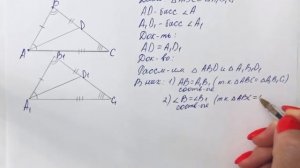 AD - бисс ∠A
A₁D₁ - бисс ∠A₁
Док-ть:
AD = A₁D₁
Док-во:
Рассм-им △ABD и △A₁B₁D₁
В них: 1) AB = A₁B₁ (т.к △ABC = △A₁B₁C₁)
соотв-ие
2) ∠B = ∠B₁ (т.к △ABC =
соотв-ие
B
D
A
C
B₁
D₁
A₁
C₁